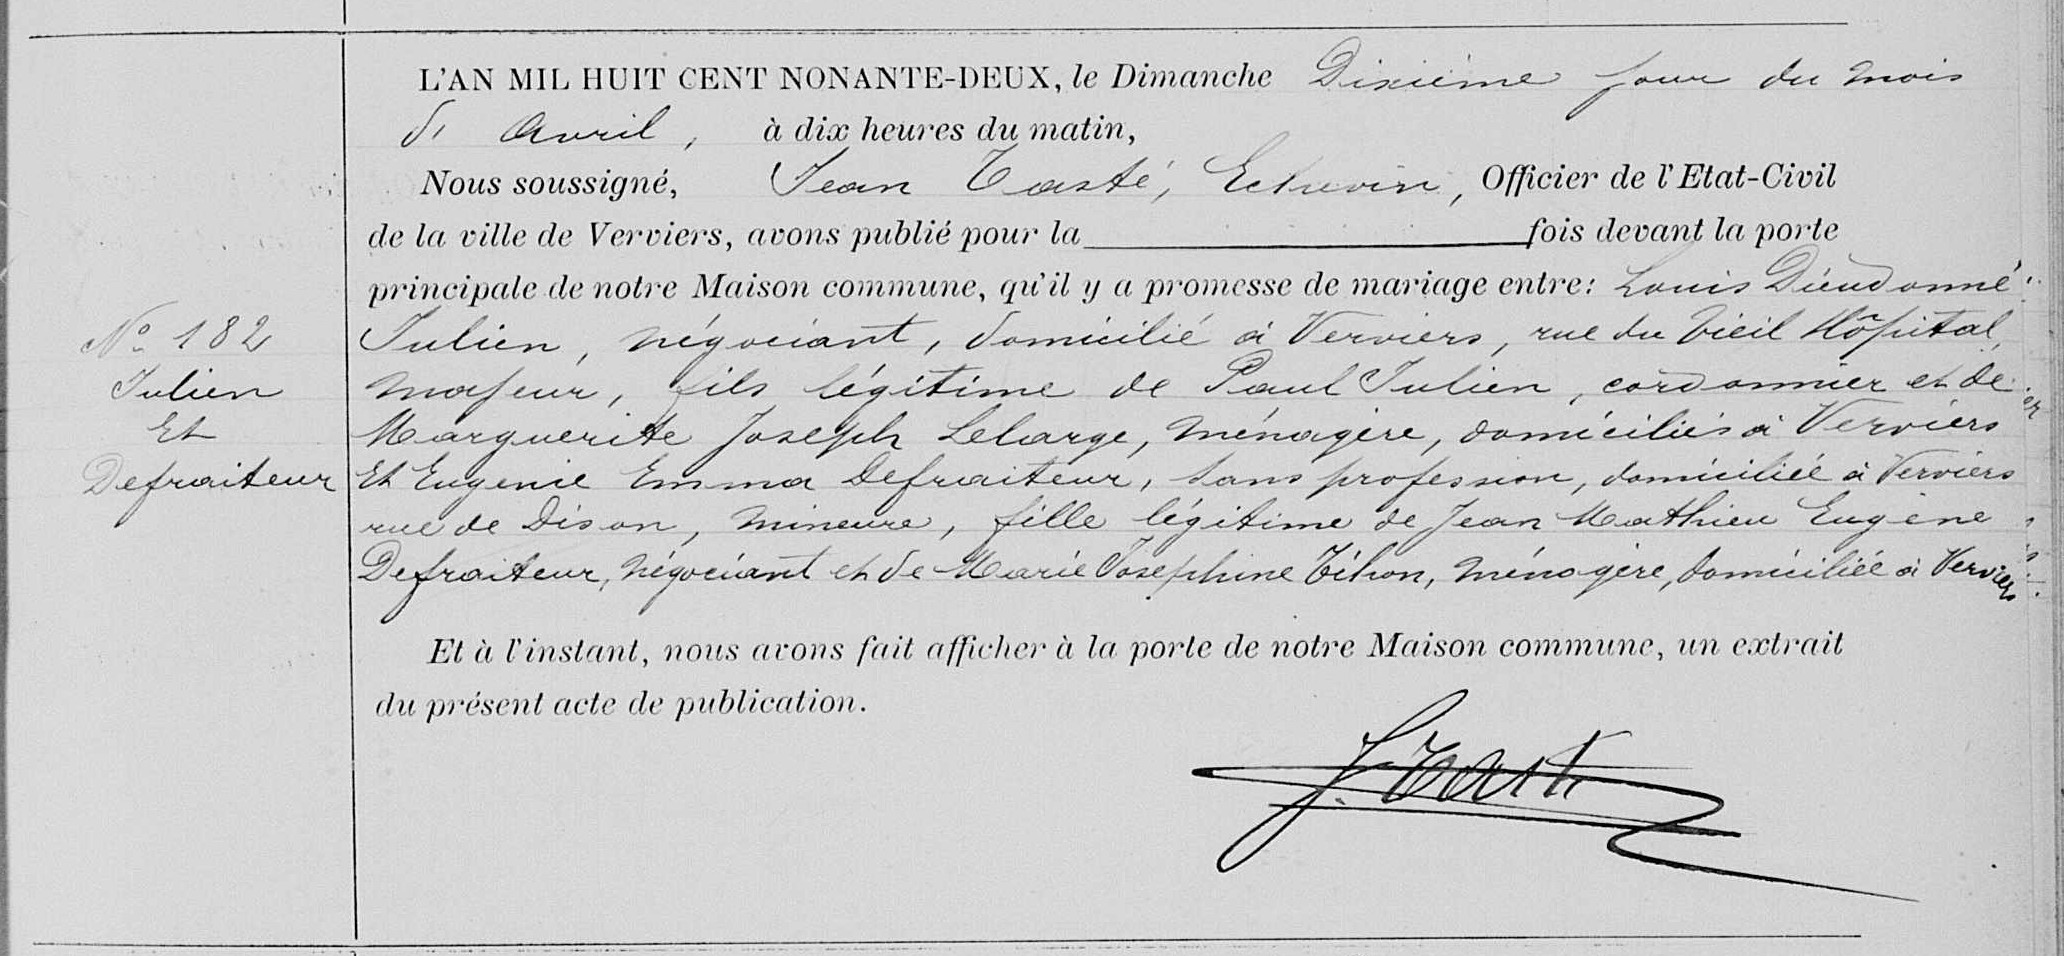 L'AN MIL HUIT CENT NONANTE-DEUX, le Dimanche Dixième jour du mois
d' Avril, à dix heures du matin,
Nous soussigné, Jean Tasté, Echevin, Officier de l'Etat-Civil
de la ville de Verviers, avons publié pour la fois devant la porte
principale de notre Maison commune, qu'il y a promesse de mariage entre: Louis Dieudonné
N° 182
Julien
Et
Defraiteur
Julien, négociant, domicilié à Verviers, rue du Vieil Hôpital,
majeur, fils légitime de Paul Julien, cordonnier et de
Marguerite Joseph Lelarge, ménagère, domiciliés à Verviers
Et Eugenie Emma Defraiteur, sans profession, domiciliée à Verviers
rue de Dison, mineure, fille légitime de Jean Mathieu Eugène
Defraiteur, négociant et de Marie Josephine Tihon, ménagère, domiciliée à Verviers
Et à l'instant, nous avons fait afficher à la porte de notre Maison commune, un extrait
du présent acte de publication.
J. Tasté